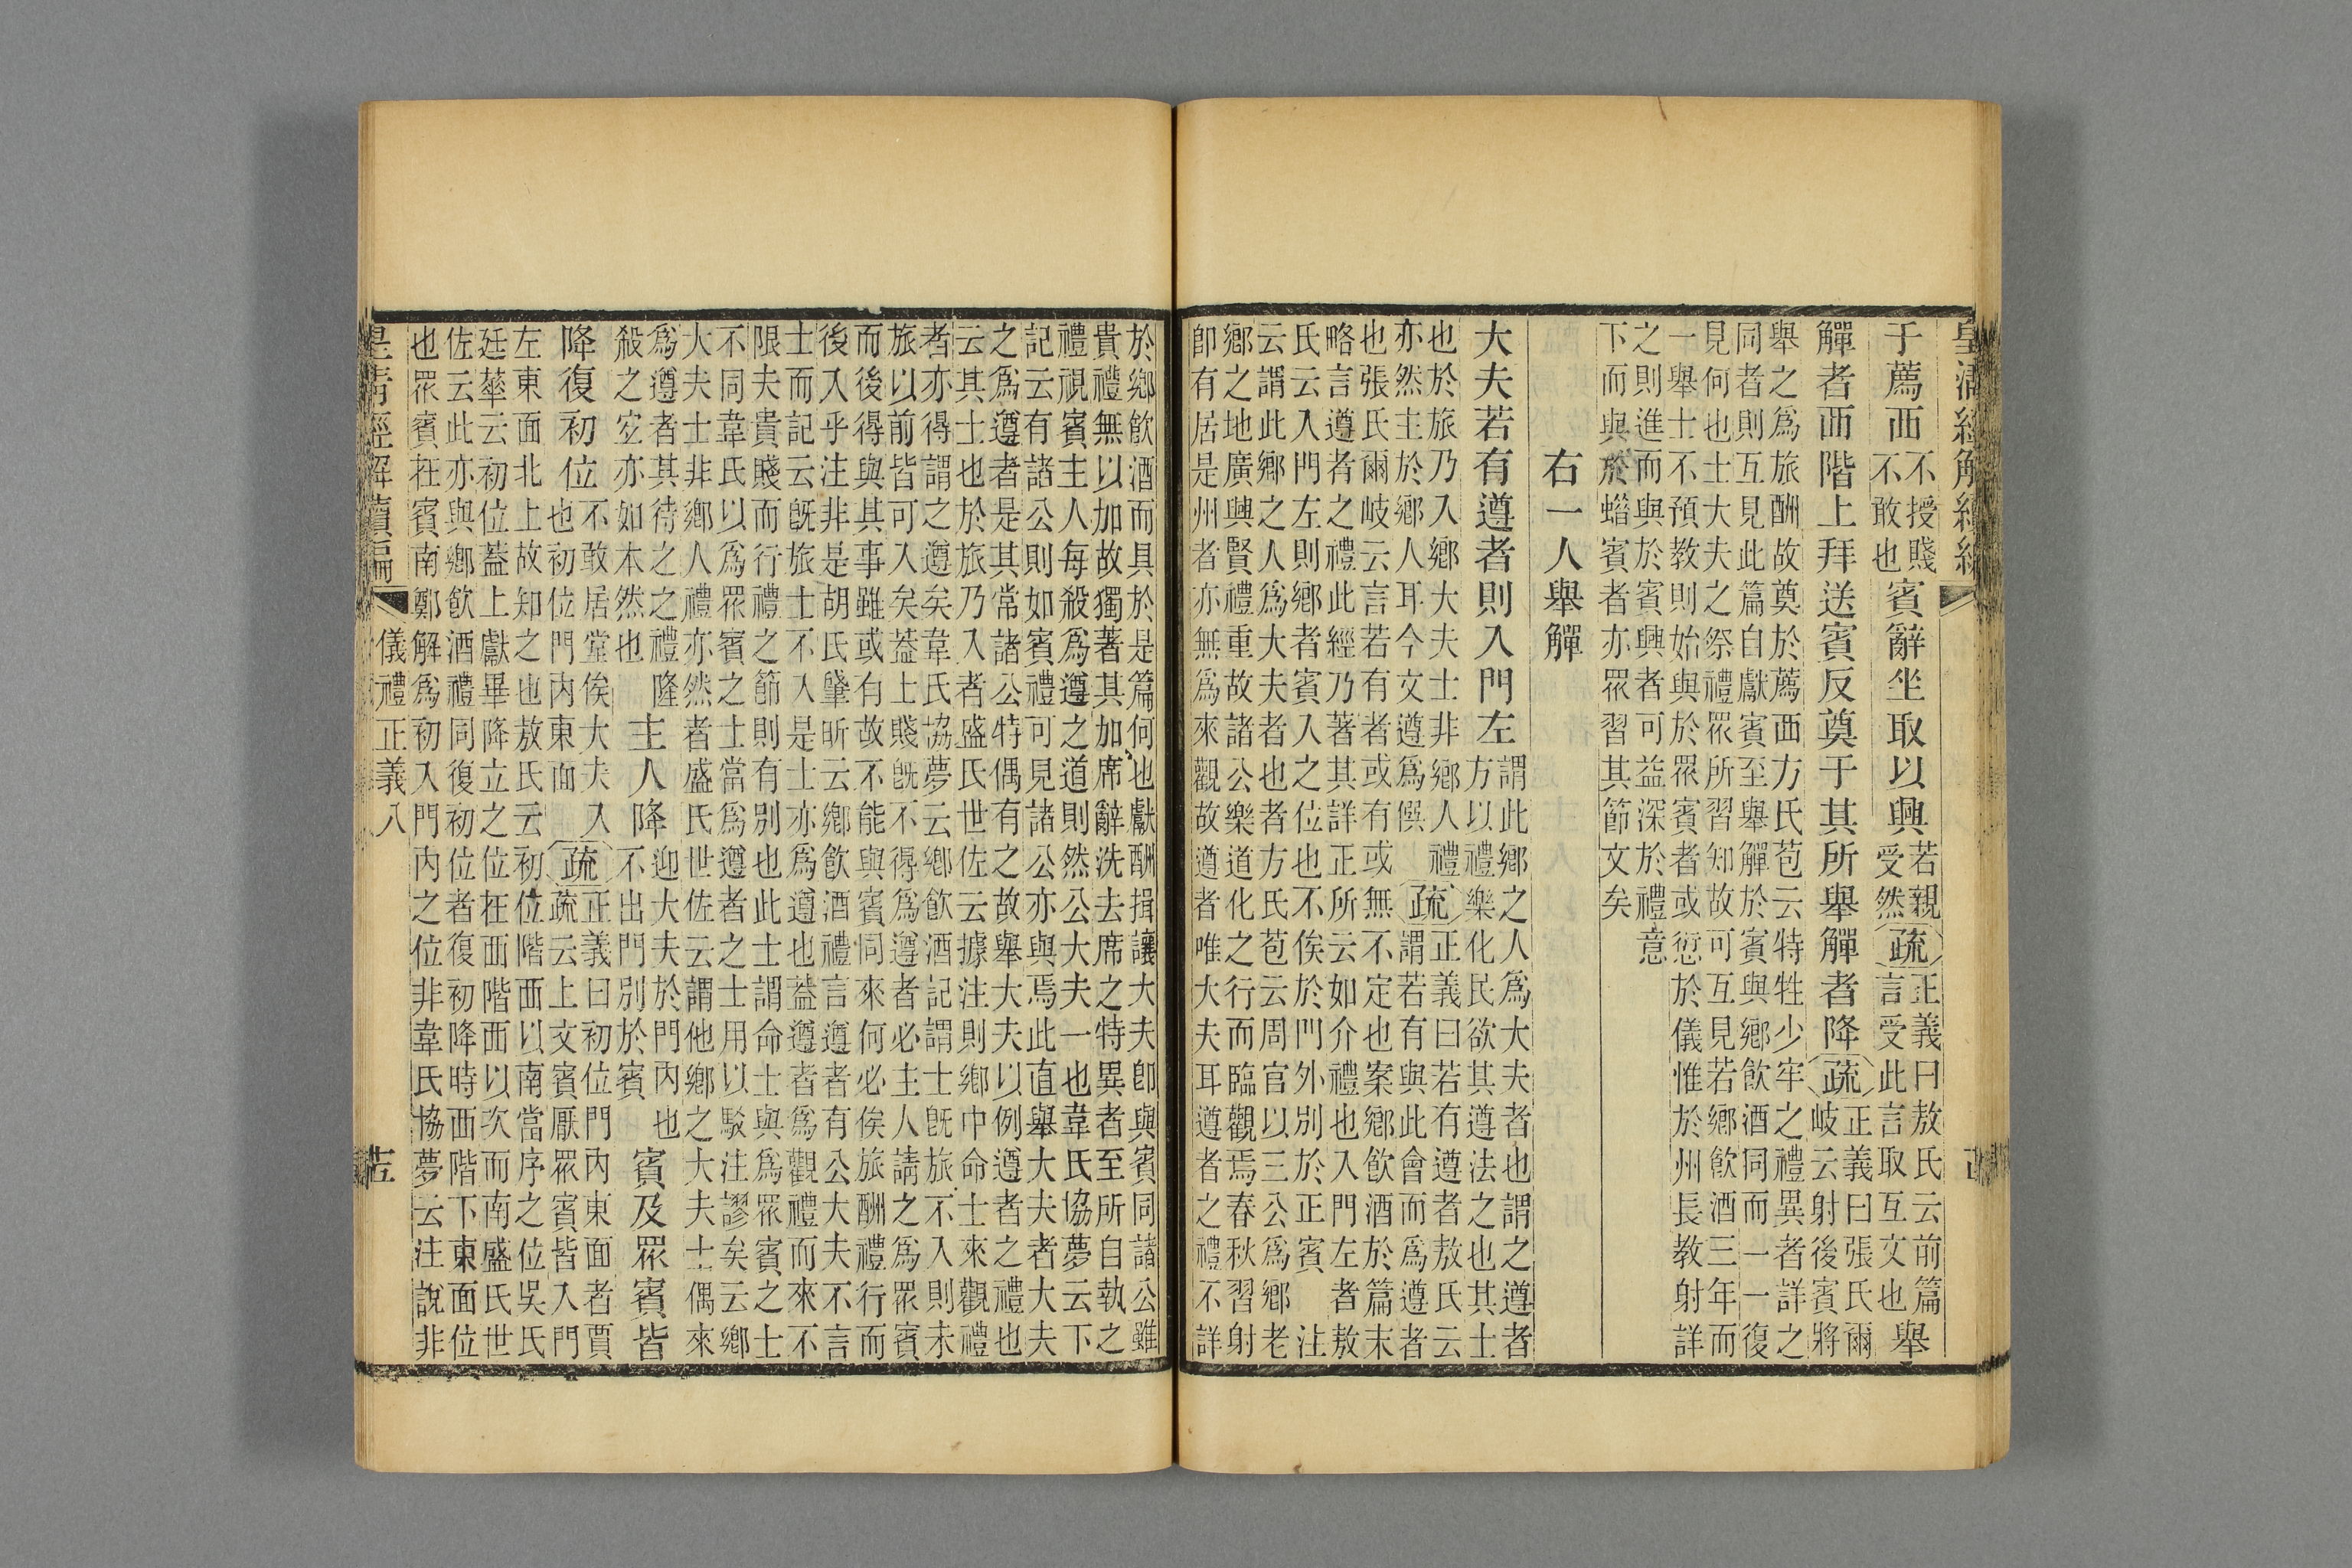 皇清經解續編
于薦西不授賤
不敢也賓辭坐取以興若親
受然疏正義曰敖氏云前篇
言受此言取互文也舉
觶者西階上拜送賓反奠于其所舉觶者降疏正義曰張氏爾
岐云射後賓將
舉之爲旅酬故奠於薦西方氏苞云特牲少牢之禮異者詳之
同者則互見此篇自獻賓至舉觶於賓與鄉飮酒同而一一復
見何也士大夫之祭禮眾所習知故可互見若鄉飮酒三年而
一舉士不預教則始與於眾賓者或愆於儀惟於州長教射詳
之則進而與於賓興者可益深於禮意
下而與於蜡賓者亦眾習其節文矣
右一人舉觶
大夫若有遵者則入門左謂此鄉之人爲大夫者也謂之遵者
方以禮樂化民欲其遵法之也其士
也於旅乃入鄉大夫士非鄉人禮
亦然主於鄉人耳今文遵爲僎疏正義曰若有遵者敖氏云
謂若有與此會而爲遵者
也張氏爾岐云言若有者或有或無不定也案鄉飮酒於篇末
略言遵者之禮此經乃著其詳正所云如介禮也入門左者敖
氏云入門左則鄉者賓入之位也不俟於門外別於正賓 注
云謂此鄉之人爲大夫者也者方氏苞云周官以三公爲鄉老
鄉之地廣興賢禮重故諸公樂道化之行而臨觀焉春秋習射
卽有居是州者亦無爲來觀故遵者唯大夫耳遵者之禮不詳
於鄉飮酒而具於是篇何也獻酬揖讓大夫卽與賓同諸公雖
貴禮無以加故獨著其加席辭洗去席之特異者至所自執之
禮視賓主人每殺爲遵之道則然公大夫一也韋氏協夢云下
記云有諸公則如賓禮可見諸公亦與焉此直舉大夫者大夫
之爲遵者是其常諸公特偶有之故舉大夫以例遵者之禮也
云其士也於旅乃入者盛氏世佐云據注則鄉中命士來觀禮
者亦得謂之遵矣韋氏協夢云鄉飮酒記謂士旣旅不入則未
旅以前皆可入矣葢上賤旣不得爲遵者必主人請之爲眾賓
而後得與其事雖或有故不能與賓同來何必俟旅酬禮行而
後入乎注非是胡氏肇昕云鄉飮酒禮言遵者有公大夫不言
士而記云旣旅士不入是士亦爲遵也葢遵者爲觀禮而來不
限夫貴賤而行禮之節則有別也此士謂命士與爲眾賓之士
不同韋氏以爲眾賓之士當爲遵者之士用以駁注謬矣云鄉
大夫士非鄉人禮亦然者盛氏世佐云謂他鄉之大夫士偶來
爲遵者其待之之禮隆
殺之宐亦如本然也主人降迎大夫於門內也
不出門別於賓賓及眾賓皆
降復初位不敢居堂俟大夫入
也初位門內東面疏正義曰初位門內東面者賈
疏云上文賓厭眾賓皆入門
左東面北上故知之也敖氏云初位階西以南當序之位吳氏
廷華云初位葢上獻畢降立之位在西階西以次而南盛氏世
佐云此亦與鄉飮酒禮同復初位者復初降時西階下東面位
也眾賓在賓南鄭解爲初入門內之位非韋氏協夢云注說非
皇清經解續編 儀禮正義八